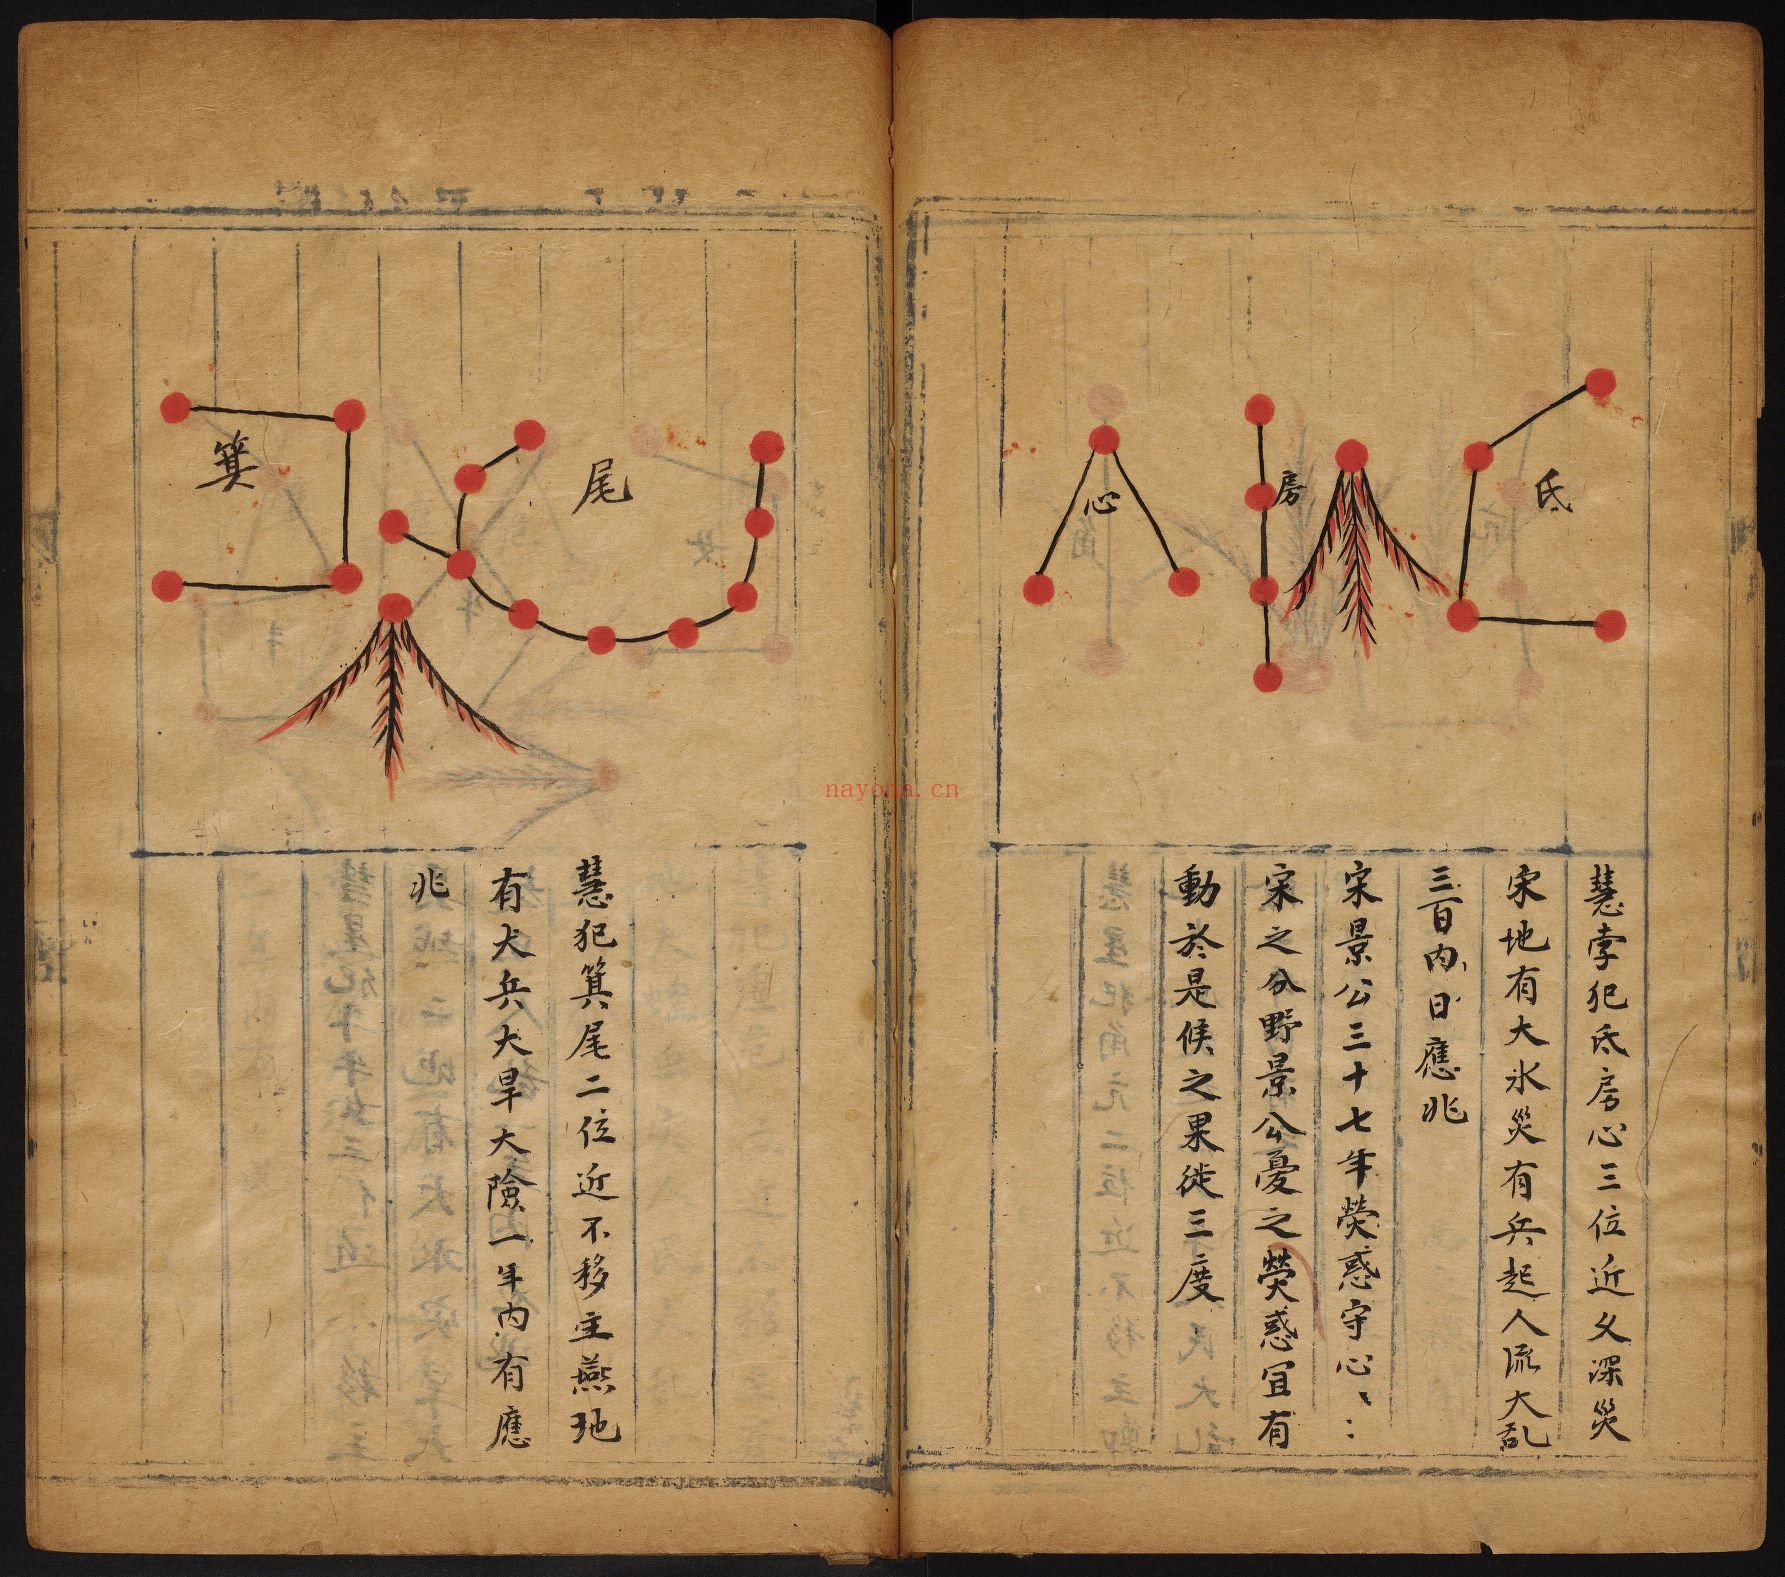 氐
房
心
慧孛犯氐房心三位近乂深災
宋地有大水災有兵起人流大乱
三百内日應兆
宋景公三十七年熒惑守心〻
宋之分野景公憂之熒惑宜有
動於是候之果徙三度
尾
箕
慧犯箕尾二位近不移主燕地
有大兵大旱大險一年内有應
兆
nayona.cn